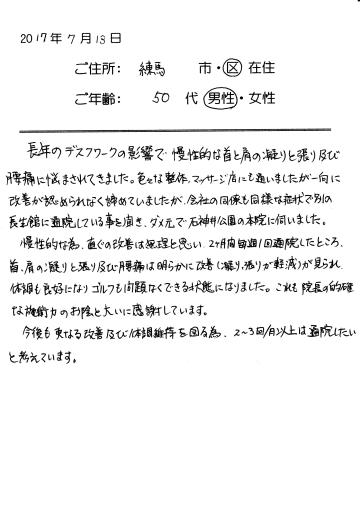 2017年7月18日
ご住所: 練馬 市・区 在住
ご年齢: 50 代 男性・女性
長年のデスクワークの影響で慢性的な首と肩の凝りと張り及び
腰痛に悩まされてきました。色々な整体、マッサージ店にも通いましたが一向に
改善が認められなく諦めていましたが、会社の同僚も同様な症状で別の
長生館に通院している事を聞き、ダメ元で石神井公園の本院に伺いました。
慢性的な為、直ぐの改善は無理と思い、2ヶ月間毎週1回通院したところ、
首、肩の凝りと張り及び腰痛は明らかに改善(凝り、張りが軽減)が見られ
体調も良好になりゴルフも問題なくできる状態になりました。これも院長の的確
な施術力のお陰と大いに感謝しています。
今後も更なる改善及び体調維持を図る為、2〜3回/月以上は通院したい
と考えています。